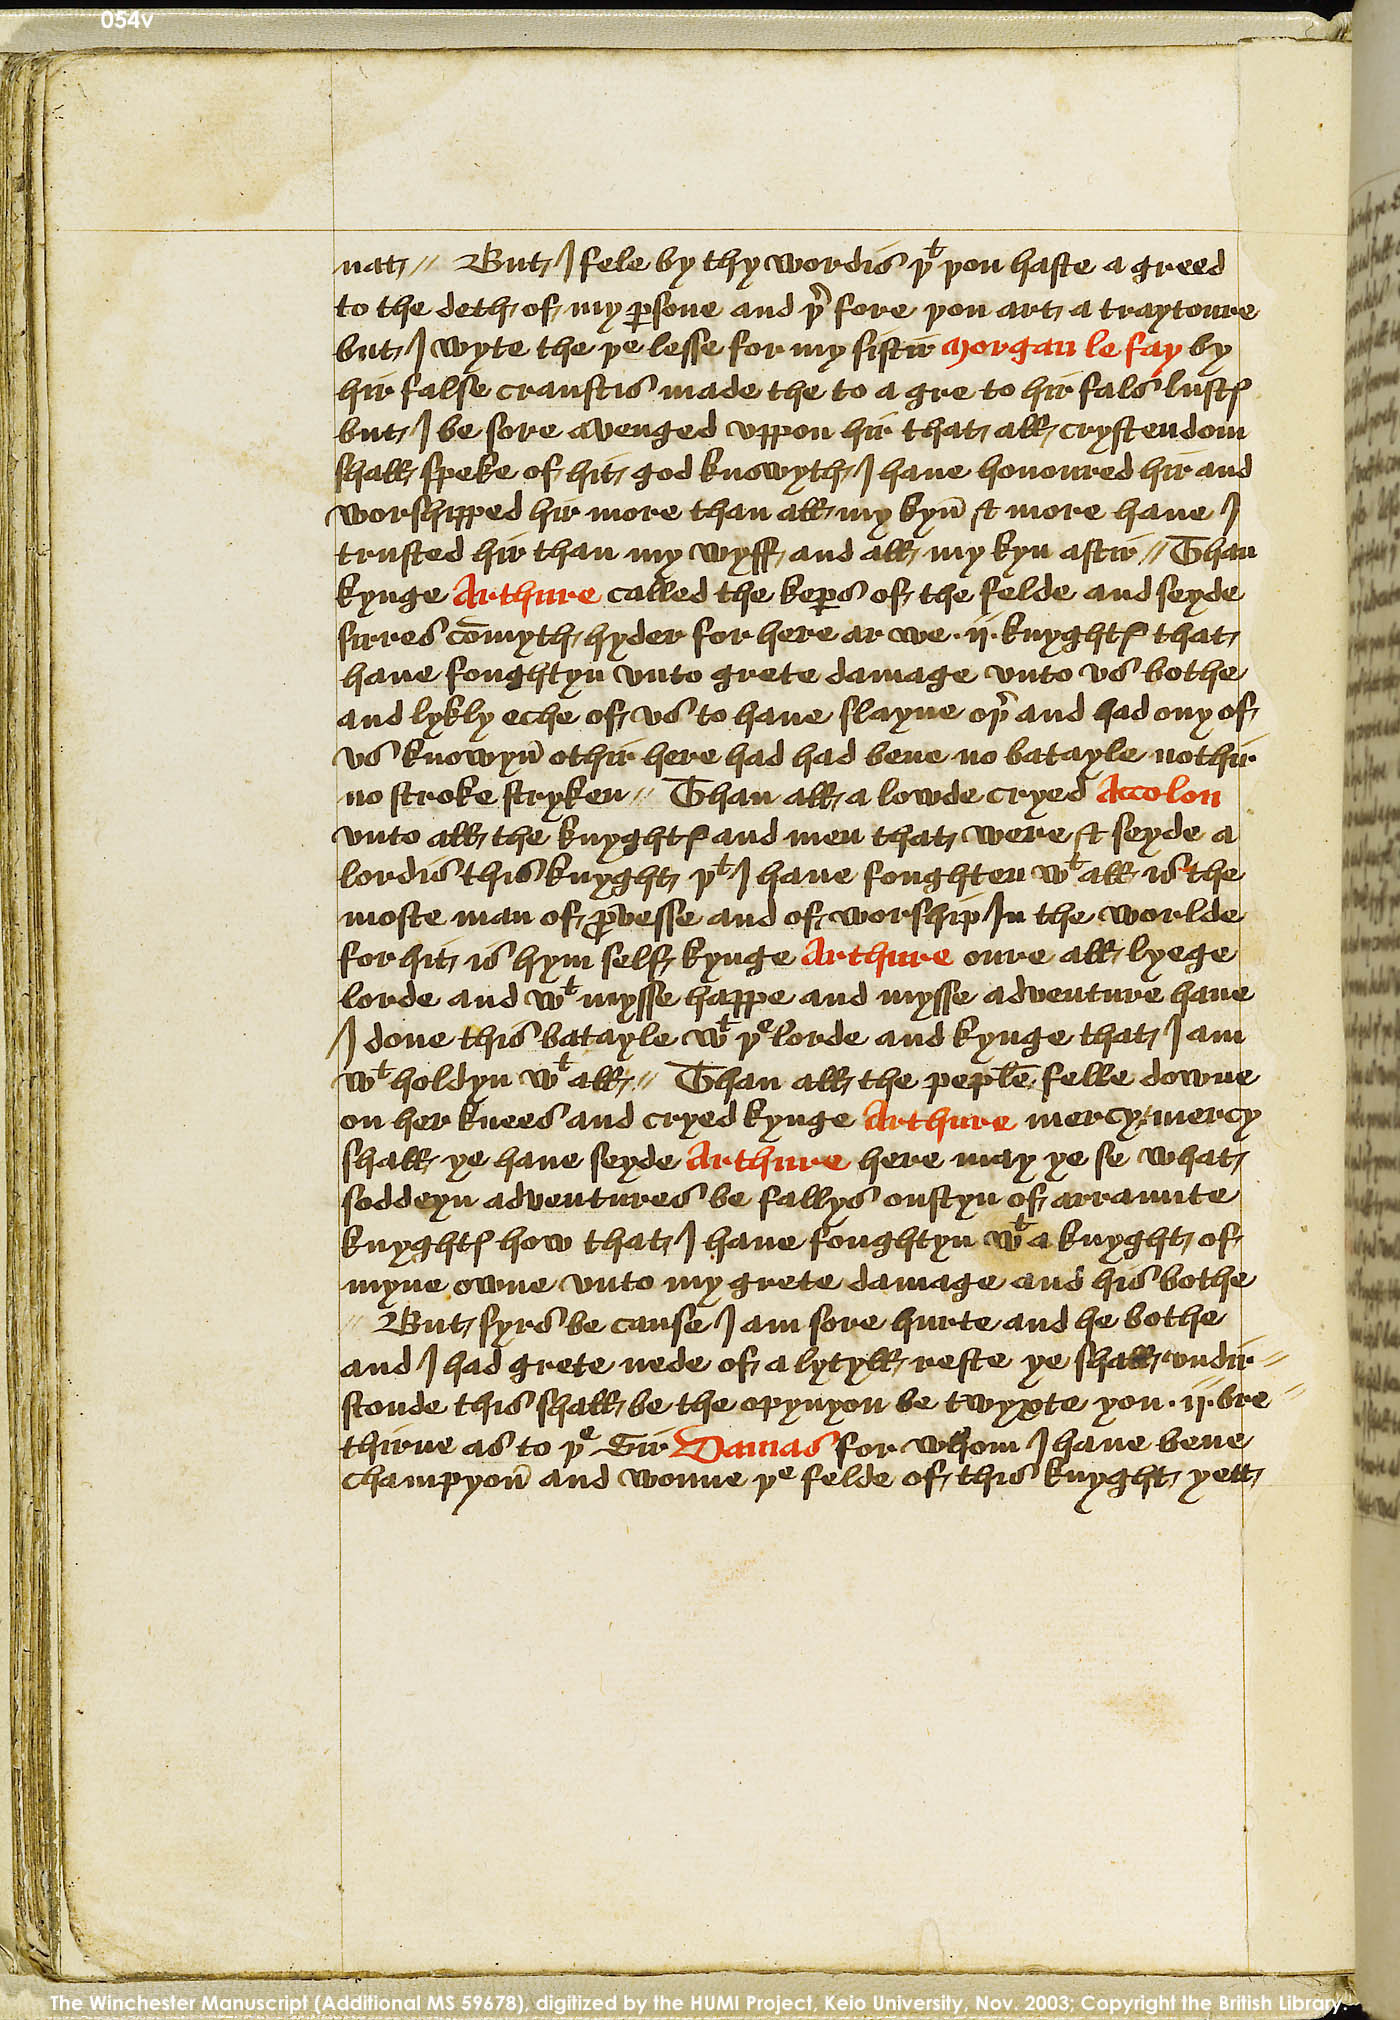 054v
nat // But I fele by thy wordis þᵗ þou haste a greed
to the deth of my ꝑsone and þʳ fore þou art a traytoure
but I wyte the þe lesse for my sistir Morgan le fay by
hir false crauftis made the to a gre to hir fals lustꝭ
but I be sore avenged vppon hir that all crystendom
shall speke of hit god knowyth I haue honoured hir and
worshipped hir more than all my kyn̄ & more haue I
trusted hir than my wyff and all my kyn aftir // Than
kynge Arthure called the keꝑs of the felde and seyde
sirres co͞myth hyder for here ar we · ij · knyghtꝭ that
haue foughtyn vnto grete damage vnto vs bothe
and lykly eche of vs to haue slayne oþʳ and had ony of
vs knowyn̄ othir here had had bene no batayle nothir
no stroke stryken // Than all a lowde cryed Accolon
vnto all the knyghtꝭ and men that were & seyde a
lordis this knyght þᵗ I haue foughten wᵗ all is the
moste man of ꝓvesse and of worship In the worlde
for hit is hym self kynge Arthure oure all lyege
lorde and wᵗ mysse happe and mysse adventure haue
I done this batayle wᵗ þᵉ lorde and kynge that I am
wᵗ holdyn wᵗ all // Than all the pepl̄e felle downe
on her knees and cryed kynge Arthure mercy mercy
shall ye haue seyde Arthure here may ye se what
soddeyn adventures be fallys ouftyn of arraunte
knyghtꝭ how that I haue foughtyn wᵗ a knyght of
myne owne vnto my grete damage and his bothe
// But syrs be cause I am sore hurte and he bothe
and I had grete nede of a lytyll reste ye shall vndir //
stonde this shall be the opynyon be twyxte you · ij · bre //
thirne as to þᵉ Sir Damas for whom I haue bene
champyon̄ and wonne þᵉ felde of this knyght yett
The Winchester Manuscript (Additional MS 59678), digitized by the HUMI Project, Keio University, Nov. 2003; Copyright the British Library.